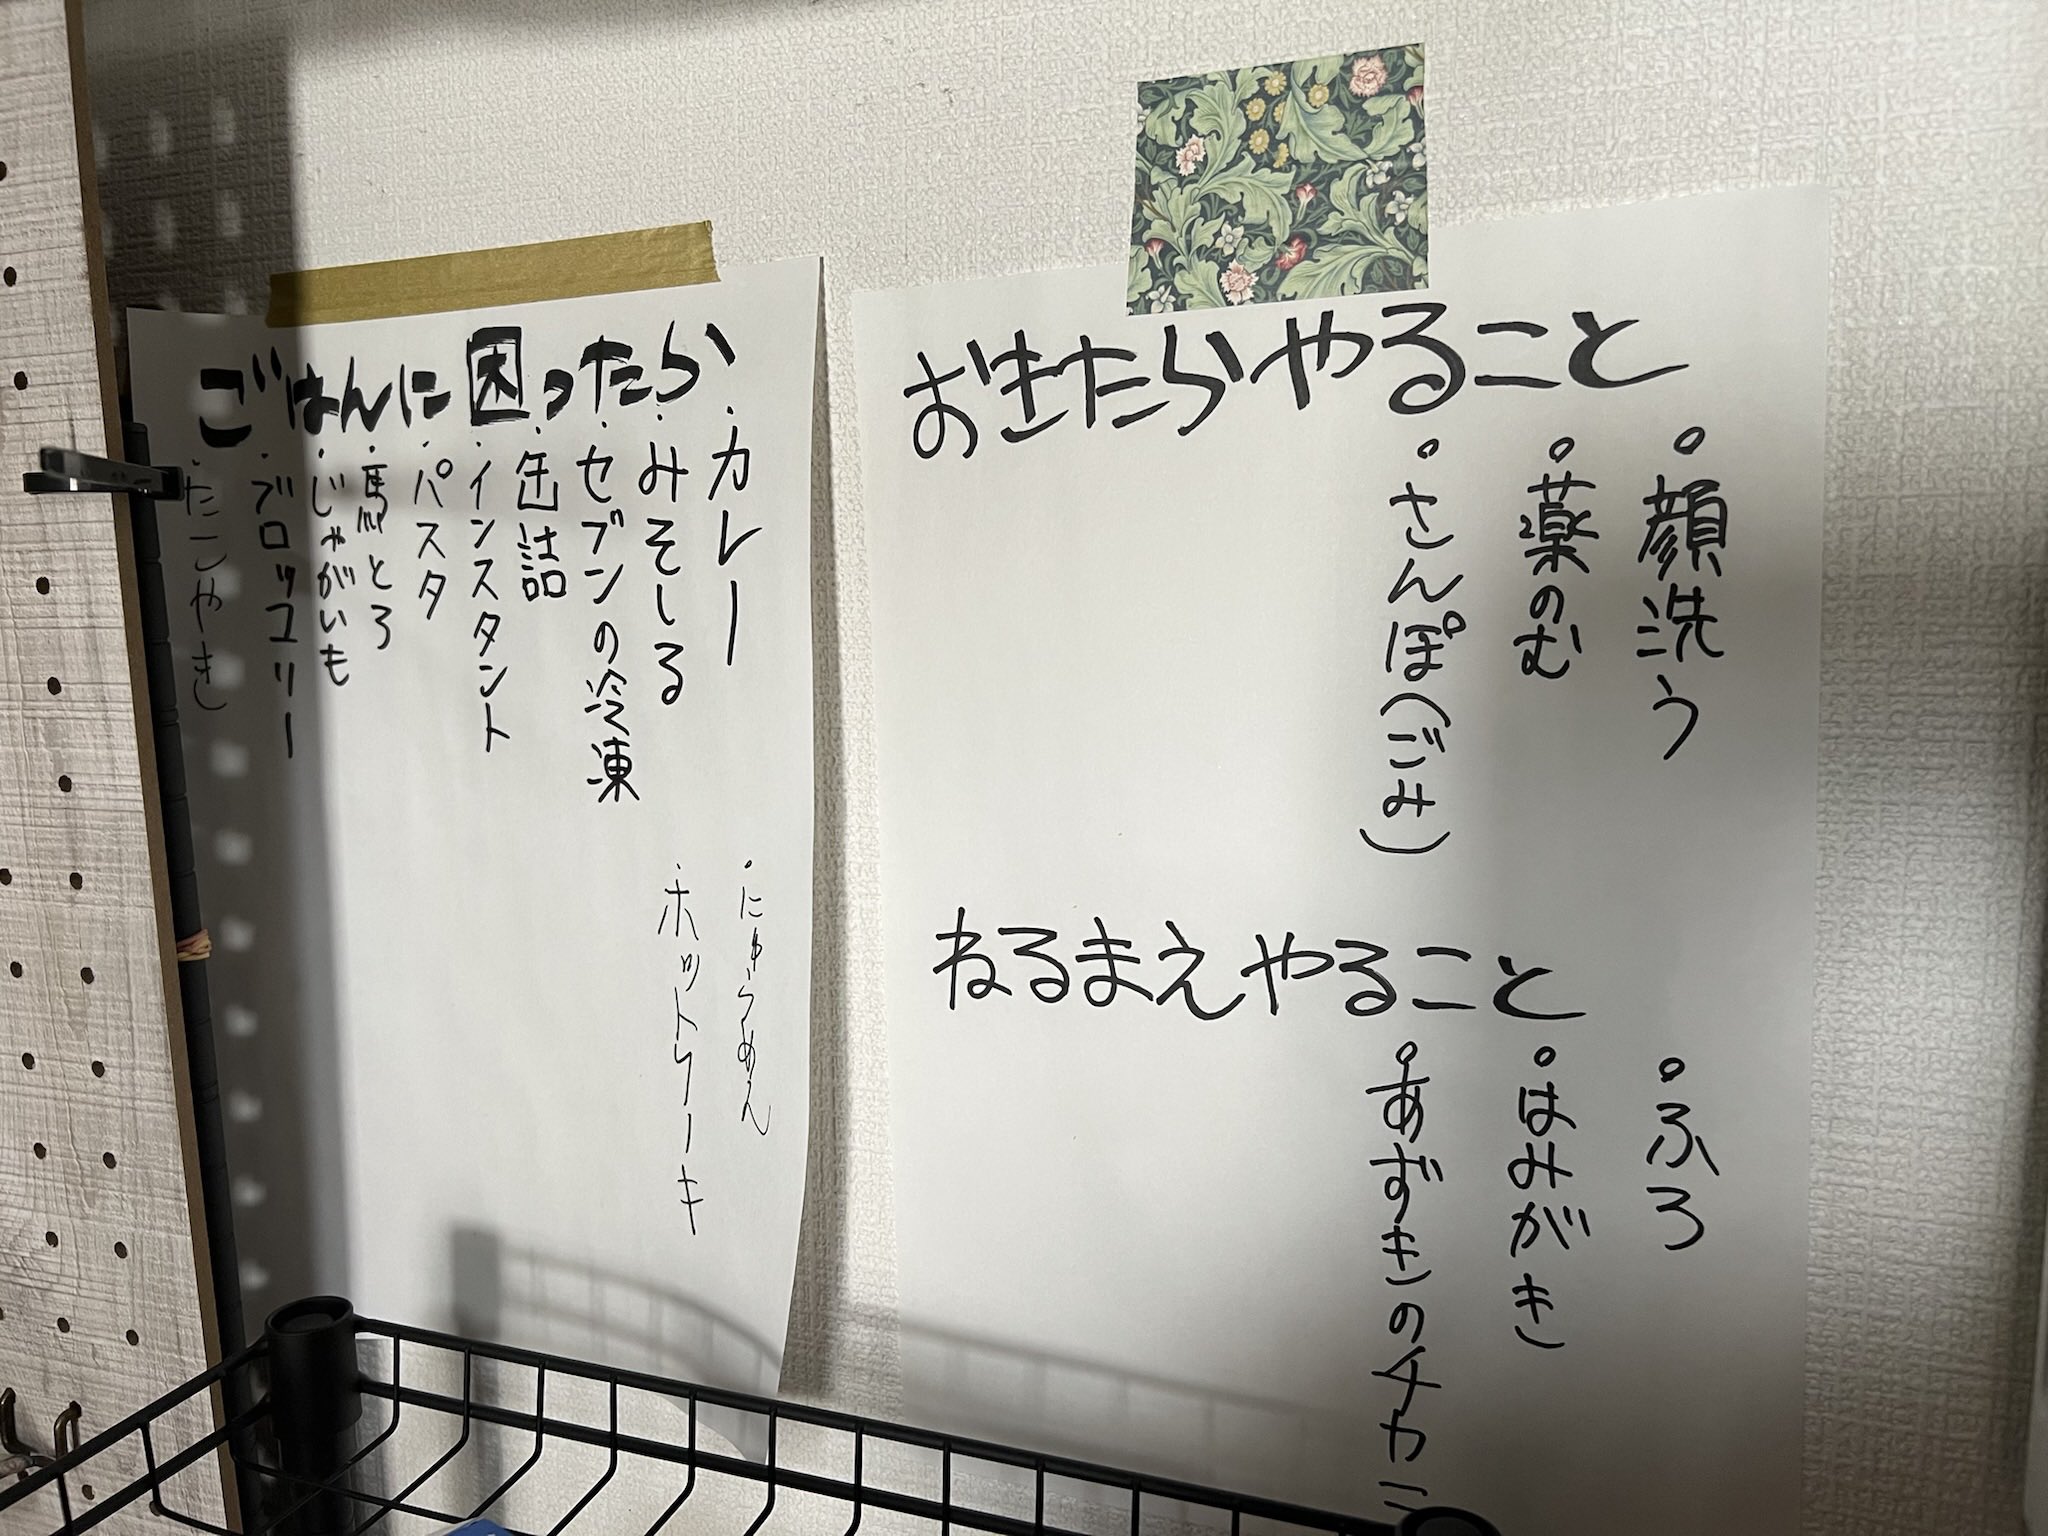 ごはんに困ったら
・カレー
・みそしる
・セブンの冷凍
・缶詰
・インスタント
・パスタ
・馬とろ
・じゃがいも
・ブロッコリー
・たこやき
・にゅうめん
・ホットケーキ
おきたらやること
・顔洗う
・薬のむ
・さんぽ(ごみ)
ねるまえやること
・ふろ
・はみがき
・あずきのチカラ